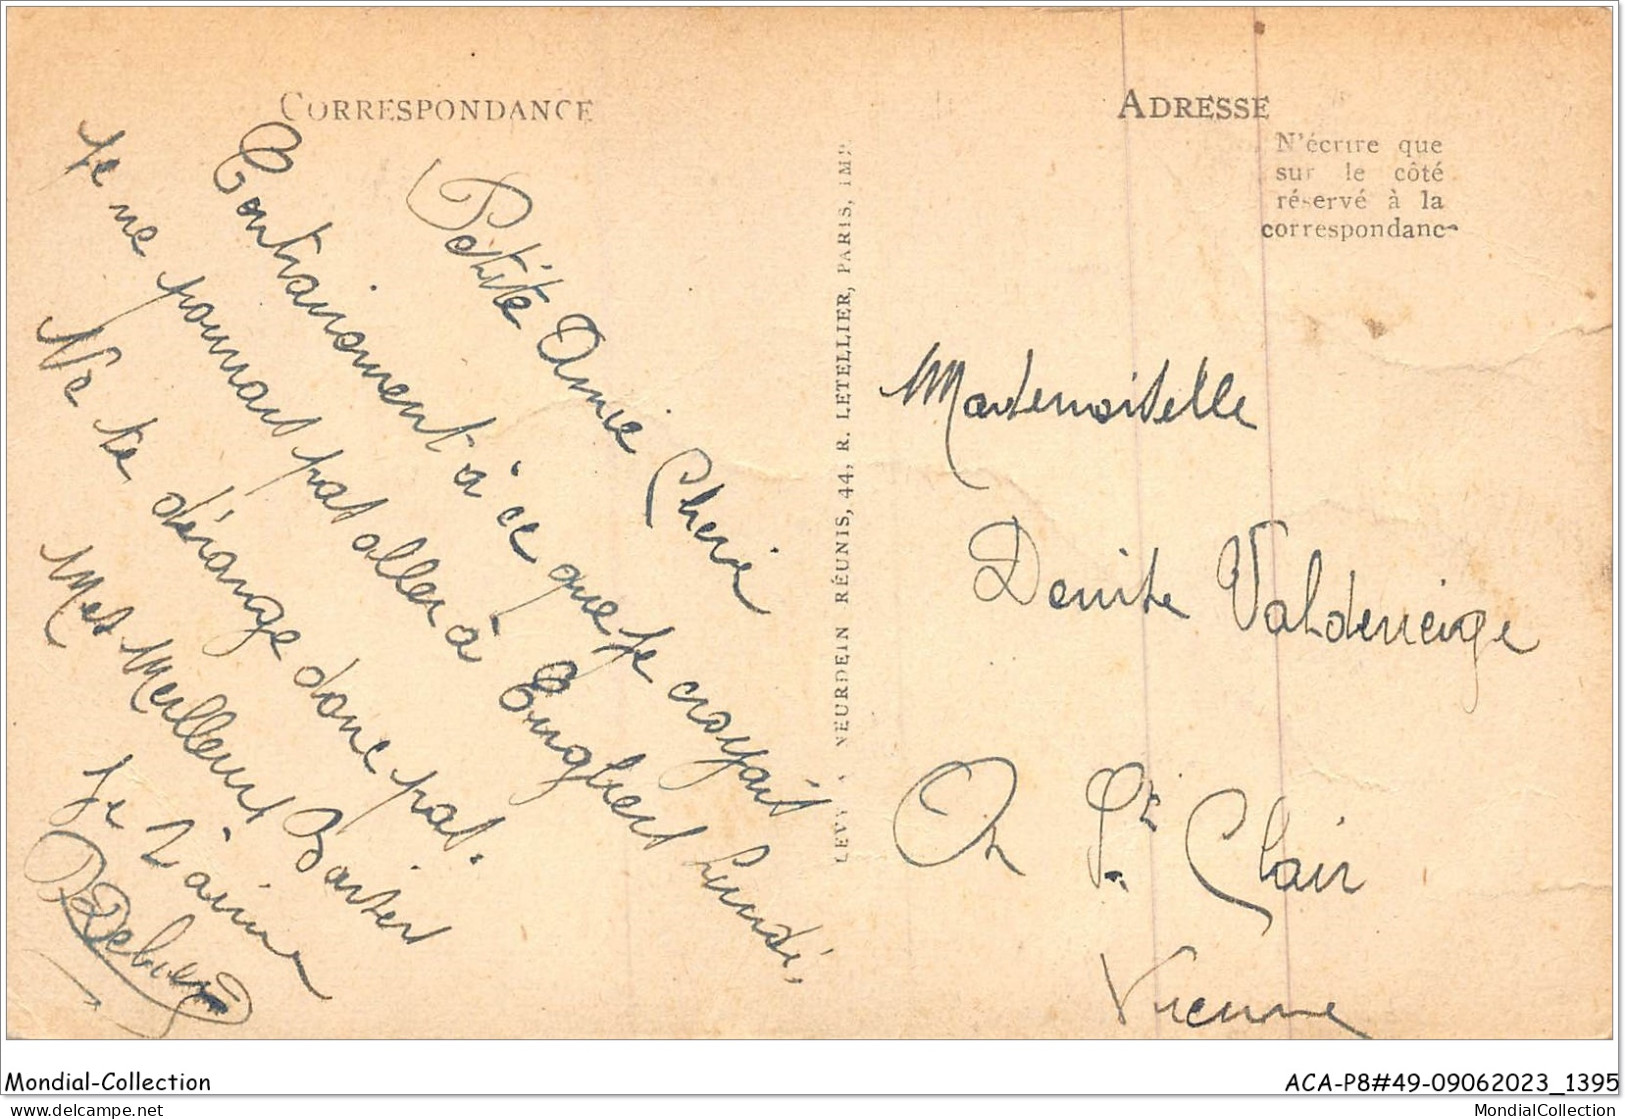 CORRESPONDANCE
Petite Amie Cherie
Contrairement à ce que je croyait
je ne pourrait pas aller à Englien Lundi,
Ne te dérange donc pas.
Mes Meilleurs Baisers
Je t'aime
ADRESSE
N'écrire que
sur le côté
réservé à la
correspondance
LEVY NEURDEIN RÉUNIS, 44, R. LETELLIER, PARIS, IMP.
Mademoiselle
Denise Valdeneige
On St Clair
Vienne
Mondial-Collection
ACA-P8#49-09062023_1395
www.delcampe.net
MondialCollection